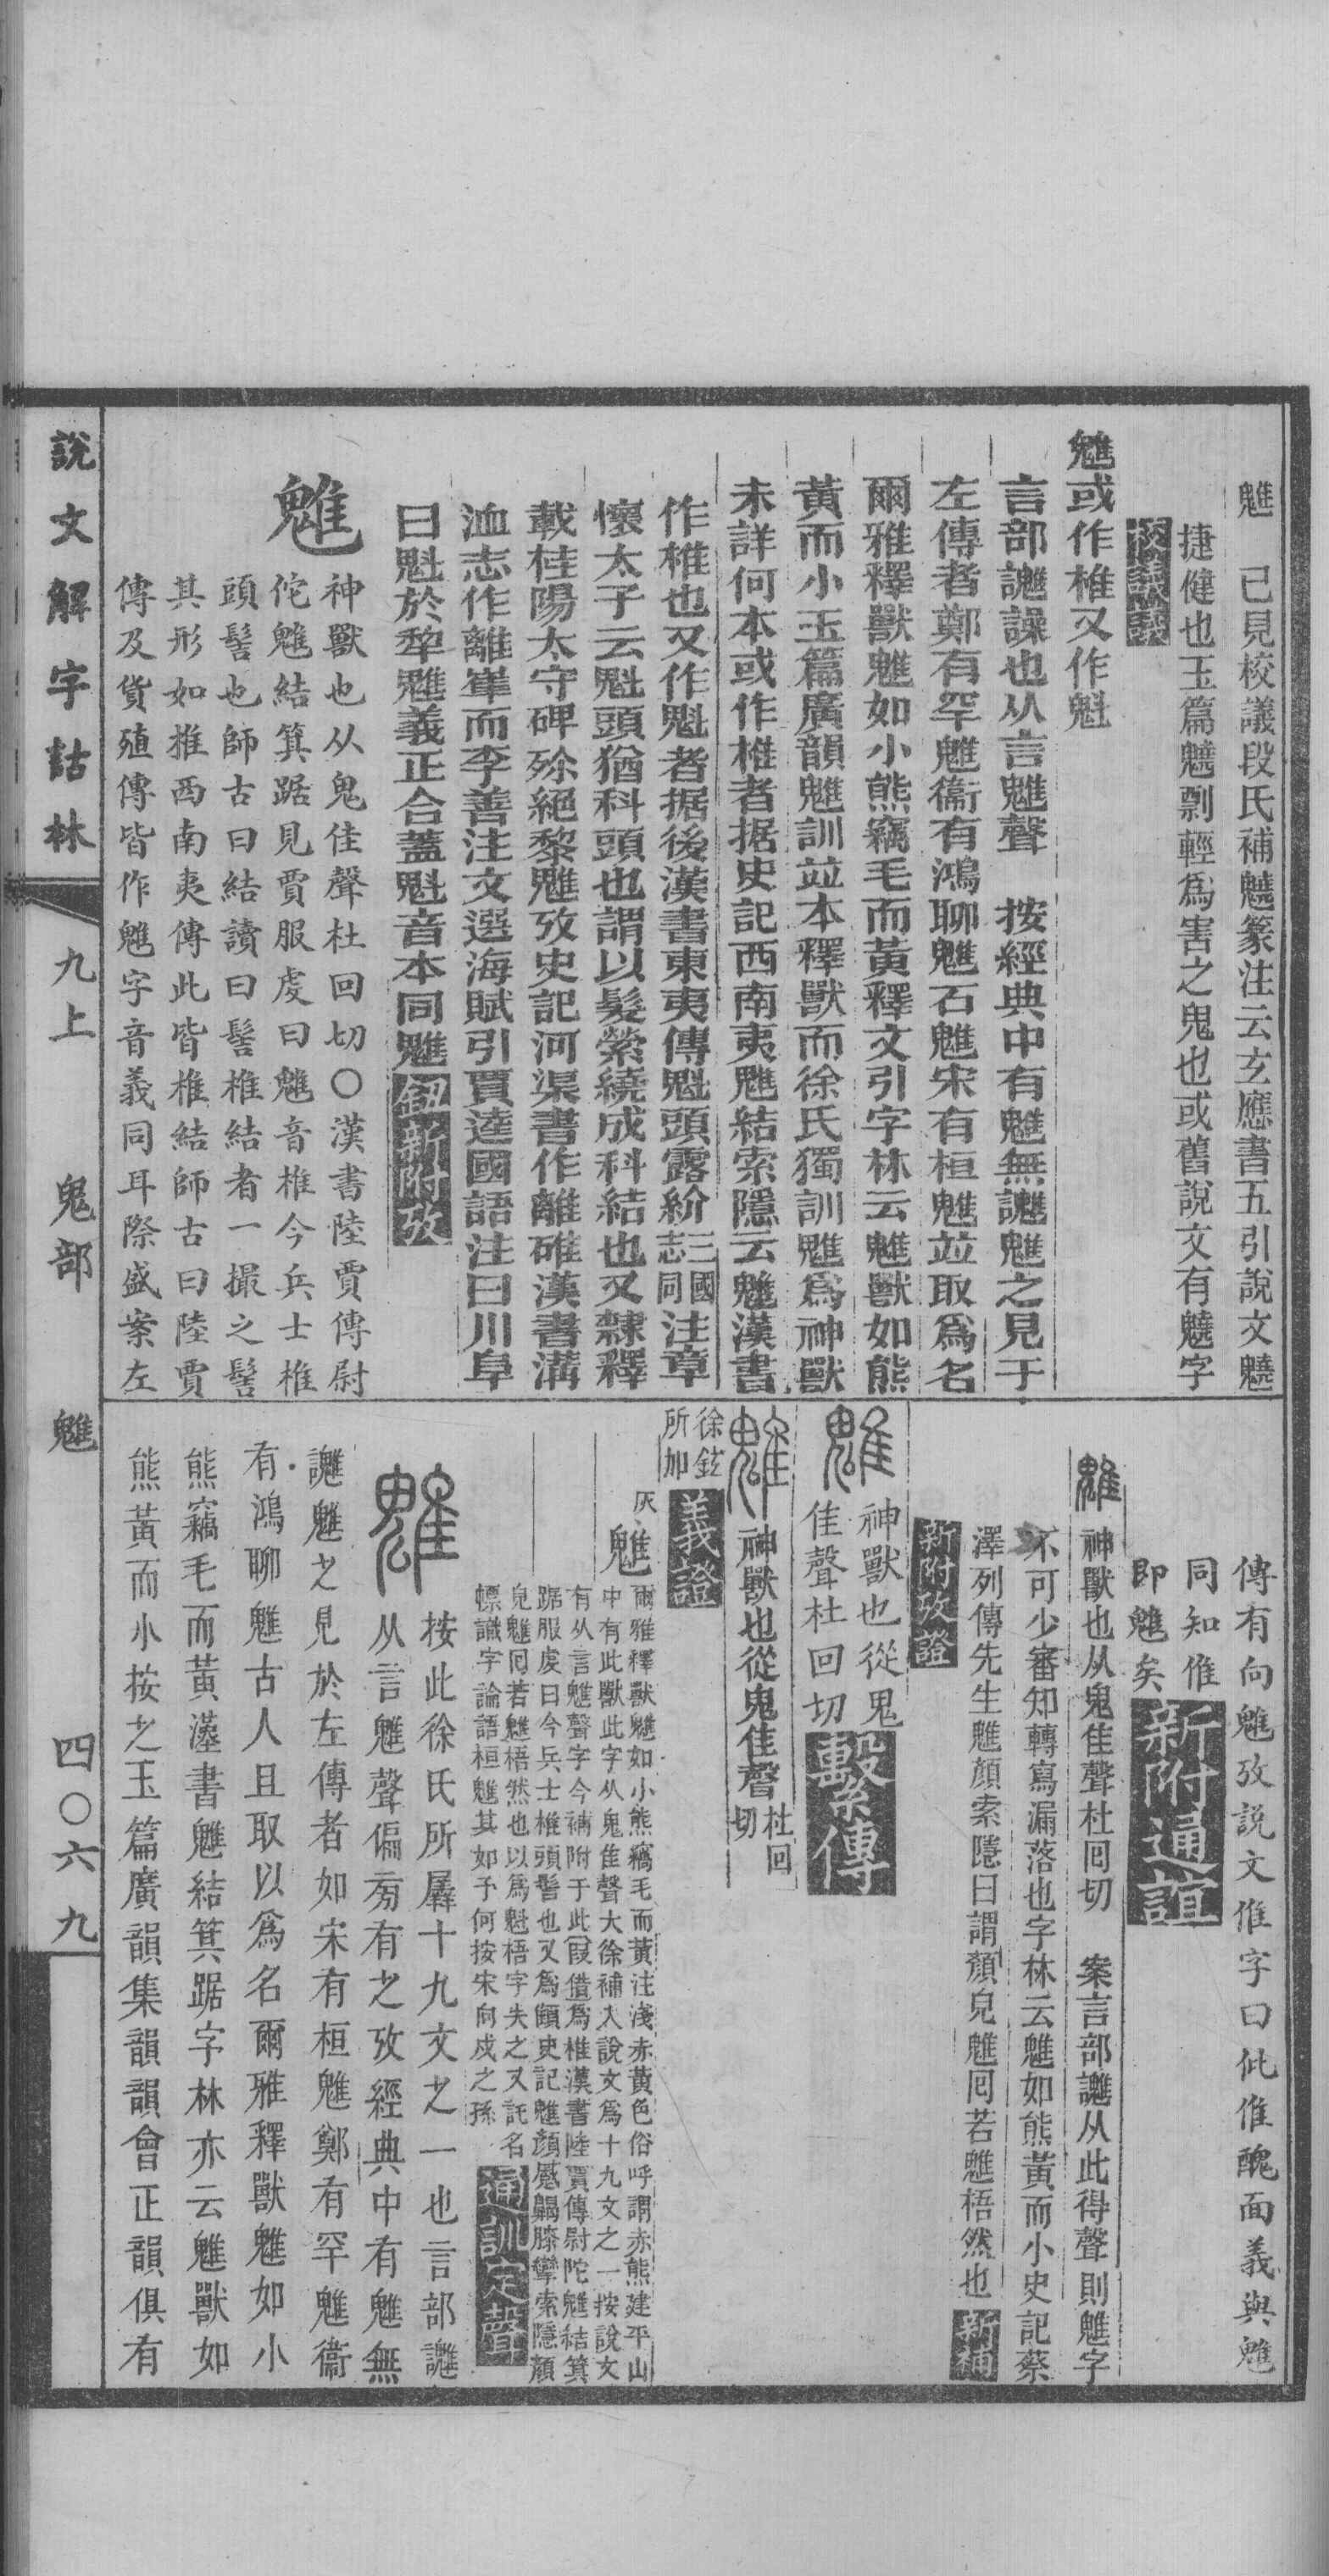 魋　已見校議段氏補𩴞篆注云玄應書五引說文𩴞
捷健也玉篇𩴞剽輕爲害之鬼也或舊說文有𩴞字
魋或作椎又作魁
言部讙譟也从言魋聲　按經典中有魋無讙魋之見于
左傳者鄭有罕魋衞有鴻聊魋石魋宋有桓魋竝取爲名
爾雅釋獸魋如小熊竊毛而黃釋文引字林云魋獸如熊
黃而小玉篇廣韻魋訓竝本釋獸而徐氏獨訓魋爲神獸
未詳何本或作椎者据史記西南夷魋結索隱云魋漢書
作椎也又作魁者据後漢書東夷傳魁頭露紒三國志同注章
懷太子云魁頭猶科頭也謂以髮縈繞成科結也又隸釋
載桂陽太守碑殄絕黎魋攷史記河渠書作離碓漢書溝
洫志作離崔而李善注文選海賦引賈逵國語注曰川阜
曰魁於犂魋義正合蓋魁音本同魋 鈕新附攷
魋
神獸也从鬼隹聲杜回切○漢書陸賈傳尉
佗魋結箕踞見賈服虔曰魋音椎今兵士椎
頭髻也師古曰結讀曰髻椎結者一撮之髻
其形如椎西南夷傳此皆椎結師古曰陸賈
傳及貨殖傳皆作魋字音義同耳際盛案左
傳有向魋攷說文倠字曰仳倠醜面義與魋
同知倠
即魋矣 新附通誼
神獸也从鬼隹聲杜回切　案言部讙从此得聲則魋字
不可少審知轉寫漏落也字林云魋如熊黃而小史記蔡
澤列傳先生魋顏索隱曰謂顏皃魋回若魋梧然也 新補
新附攷證
神獸也從鬼
隹聲杜回切 繫傳
神獸也從鬼隹聲杜回切
徐鉉所加 義證
灰 魋
爾雅釋獸魋如小熊竊毛而黃注淺赤黃色俗呼謂赤熊建平山
中有此獸此字从鬼隹聲大徐補入說文爲十九文之一按說文
有从言魋聲字今補附于此叚借爲椎漢書陸賈傳尉陀魋結箕
踞服虔曰今兵士椎頭髻也又爲頧史記魋顏蹙齃膝攣索隱顏
皃魋回若魋梧然也以爲魁梧字失之又託名
幖識字論語桓魋其如予何按宋向戌之孫 通訓定聲
按此徐氏所羼十九文之一也言部讙
从言魋聲偏旁有之攷經典中有魋無
讙魋之見於左傳者如宋有桓魋鄭有罕魋衞
有鴻聊魋古人且取以爲名爾雅釋獸魋如小
熊竊毛而黃漢書魋結箕踞字林亦云魋獸如
熊黃而小按之玉篇廣韻集韻韻會正韻俱有
說文解字詁林　九上　鬼部　魋　四○六九